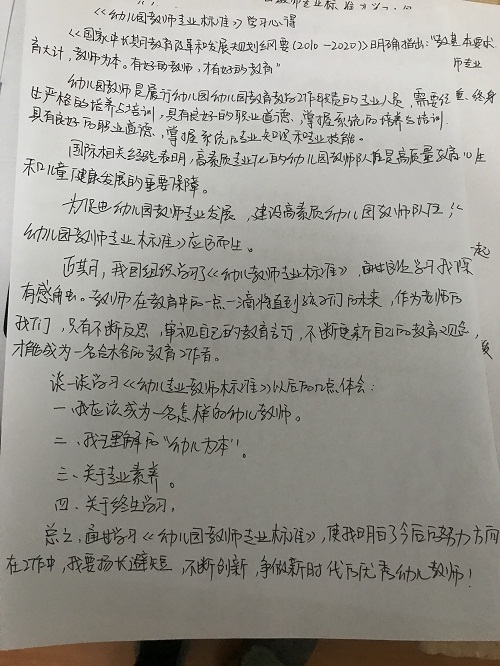 《幼儿园教师专业标准》学习心得
《国家中长期教育改革和发展规划纲要(2010-2020)》明确指出:"教
基本要求
育大计,教师为本。有好的教师,才有好的教育"
师专业
幼儿园教师是履行幼儿园幼儿园教育教学工作职责的专业人员,需要经
生严格的培养与培训,具有良好的职业道德,掌握系统的培养与培训
终身
具有良好的职业道德,掌握系统的专业知识和专业技能。
国际相关经验表明,高素质专业化的幼儿园教师队伍是高质量教育
和儿童健康发展的重要保障。
为促进幼儿园教师专业发展,建设高素质幼儿园教师队伍,《
幼儿园教师专业标准》应运而生。
近期,我园组织学习了《幼儿教师专业标准》,通过这次学习我深
有感触。教师在教育中的一点一滴将直到孩子们的未来,作为老师的
起
我们,只有不断反思,审视自己的教育言行,不断更新自己的教育观念,
才能成为一名合格的教育工作者。
谈一谈学习《幼儿专业教师标准》以后的几点体会:
一、我应该成为一名怎样的幼儿教师。
二、我理解的"幼儿为本"。
三、关于专业素养。
四、关于终生学习,
总之,通过学习《幼儿园教师专业标准》,使我明白了今后的努力方向
在工作中,我要扬长避短,不断创新,争做新时代的优秀幼儿教师!